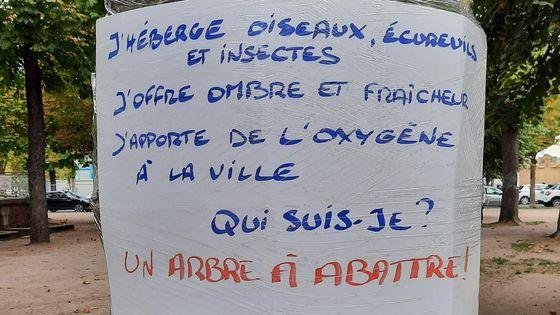 J'HÉBERGE OISEAUX, ÉCUREUILS
ET INSECTES
J'OFFRE OMBRE ET FRAÎCHEUR
J'APPORTE DE L'OXYGÈNE
À LA VILLE
QUI SUIS-JE?
UN ARBRE À ABATTRE!